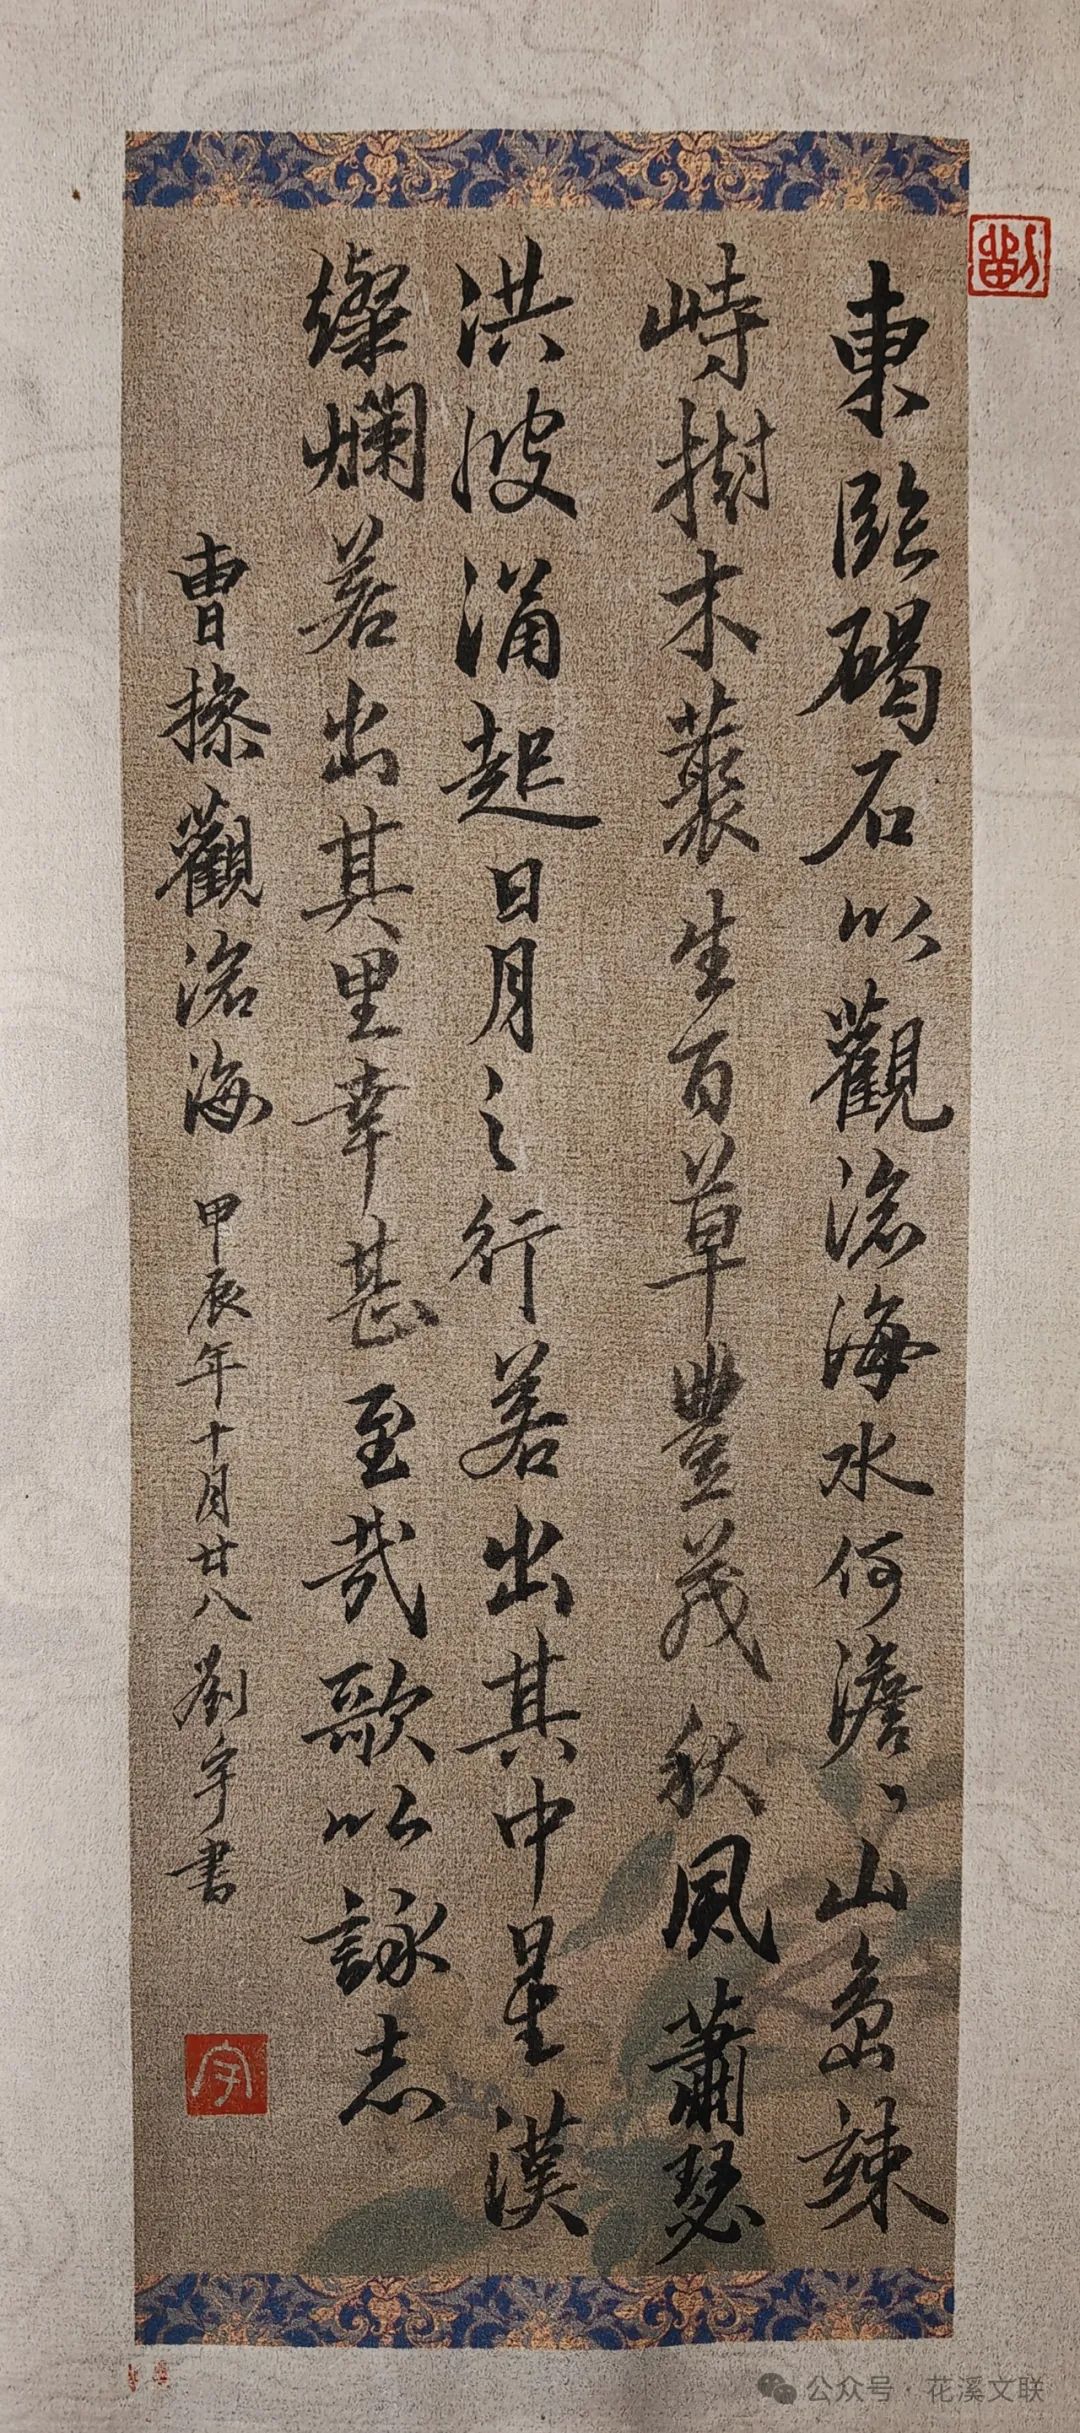 東臨碣石以觀滄海水何澹〻山島竦
峙樹木叢生百草豐茂秋風蕭瑟
洪波涌起日月之行若出其中星漢
燦爛若出其里幸甚至哉歌以詠志
曹操觀滄海 甲辰年十月廿八 劉宇書
劉
宇
公众号·花溪文联